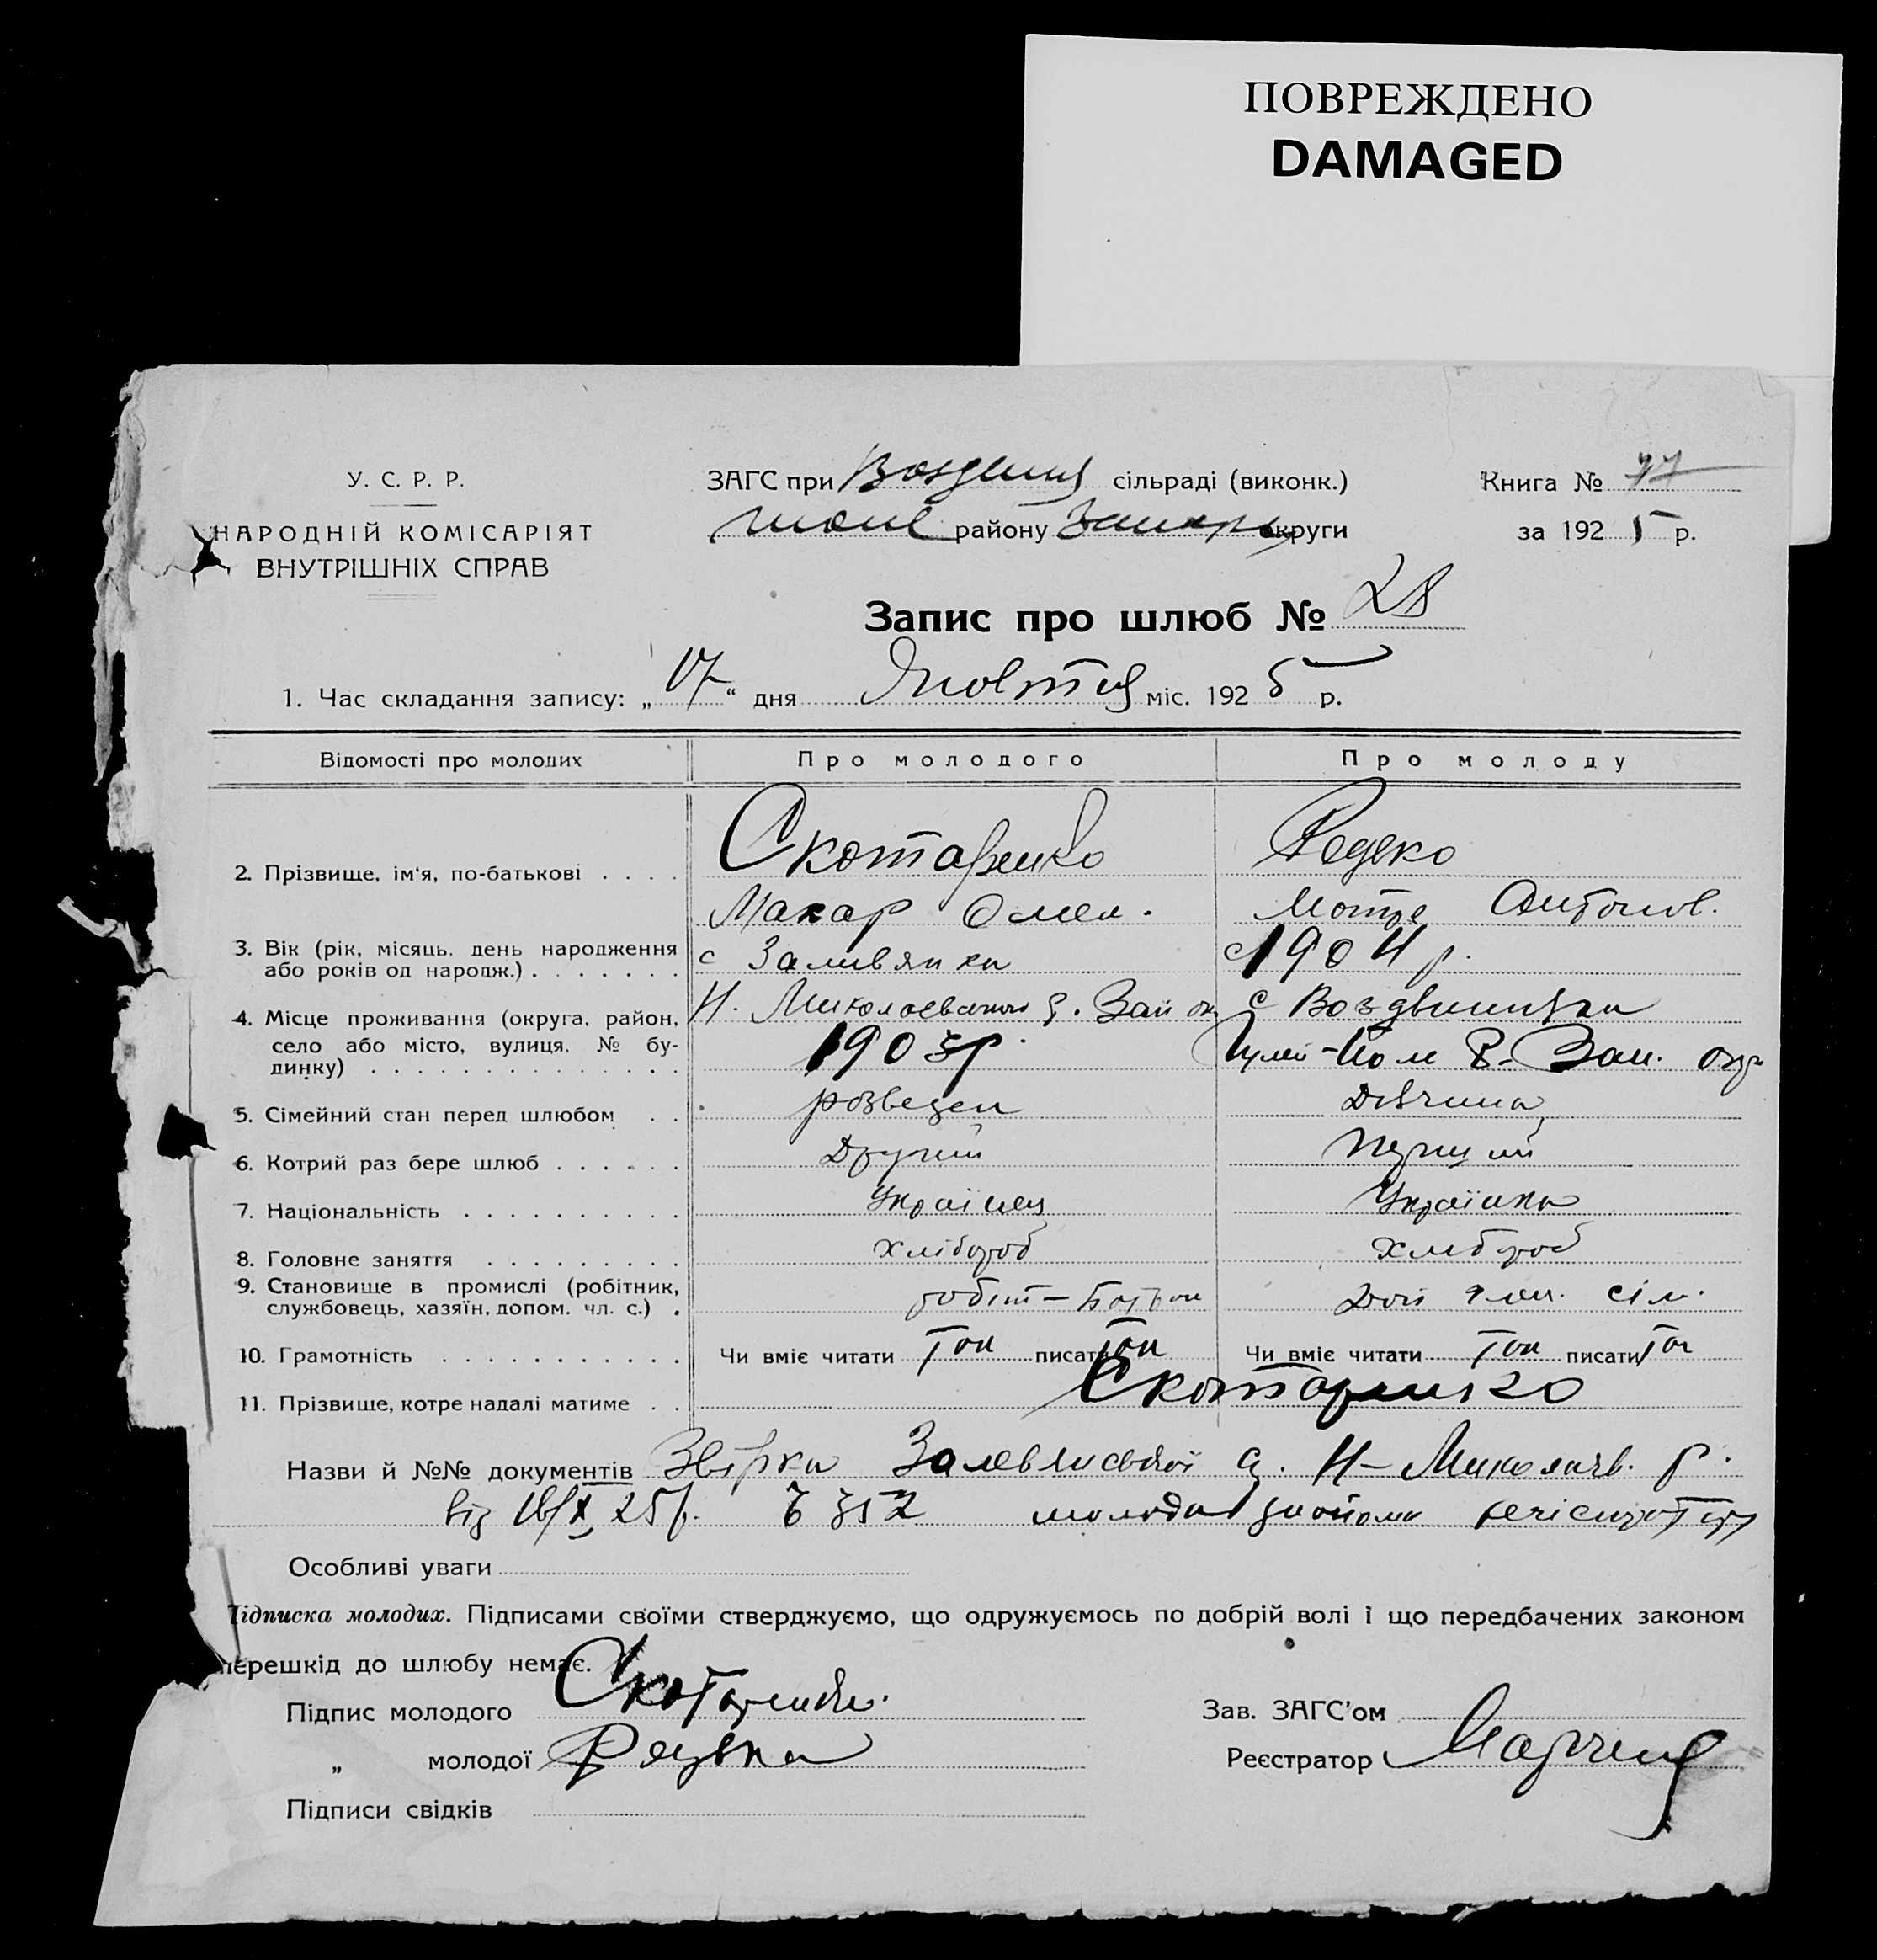 ПОВРЕЖДЕНО
DAMAGED
У. С. Р. Р.
НАРОДНІЙ КОМІСАРІЯТ
ВНУТРІШНІХ СПРАВ
ЗАГС при сільраді (виконк.)
району округи
Книга №
за 192 5 р.
Запис про шлюб № 28
1. Час складання запису: „17“ дня Жовтня міс. 1925 р.
Відомості про молодих
Про молодого
Про молоду
2. Прізвище, ім'я, по-батькові . . . .
Скотаренко
Редько
Макар Омел.
Мотря Антонов.
3. Вік (рік, місяць, день народження
або років од народж.) . . . . . . .
с Заливянки
1904 р.
4. Місце проживання (округа, район,
село або місто, вулиця, № бу-
динку) . . . . . . . . . . . . . .
Н. Миколаевського р. Зап ок
1903р.
с Воздвишівки
Гуляй-Пол Р- Зап. окр
5. Сімейний стан перед шлюбом . .
розведен
Дівчина
6. Котрий раз бере шлюб . . . . . .
Другий
Перший
7. Національність . . . . . . . . . .
Українец
Українка
8. Головне заняття . . . . . . . . .
Хлібороб
Хлібороб
9. Становище в промислі (робітник,
службовець, хазяїн, допом. чл. с.) .
робіт-
Доп член. сім.
10. Грамотність . . . . . . . . . . . .
Чи вміє читати Так писати Так
Чи вміє читати Так писати Так
11. Прізвище, котре надалі матиме . .
Скотаренко
Назви й №№ документів Заливянської с. Н-Миколаєв. р.
від 16/X 25р. № 352 молода
Особливі уваги
Підписка молодих. Підписами своїми стверджуємо, що одружуємось по добрій волі і що передбачених законом
перешкід до шлюбу немає.
Підпис молодого Скотаренко
Зав. ЗАГС'ом
„ молодої Редька
Реєстратор
Підписи свідків